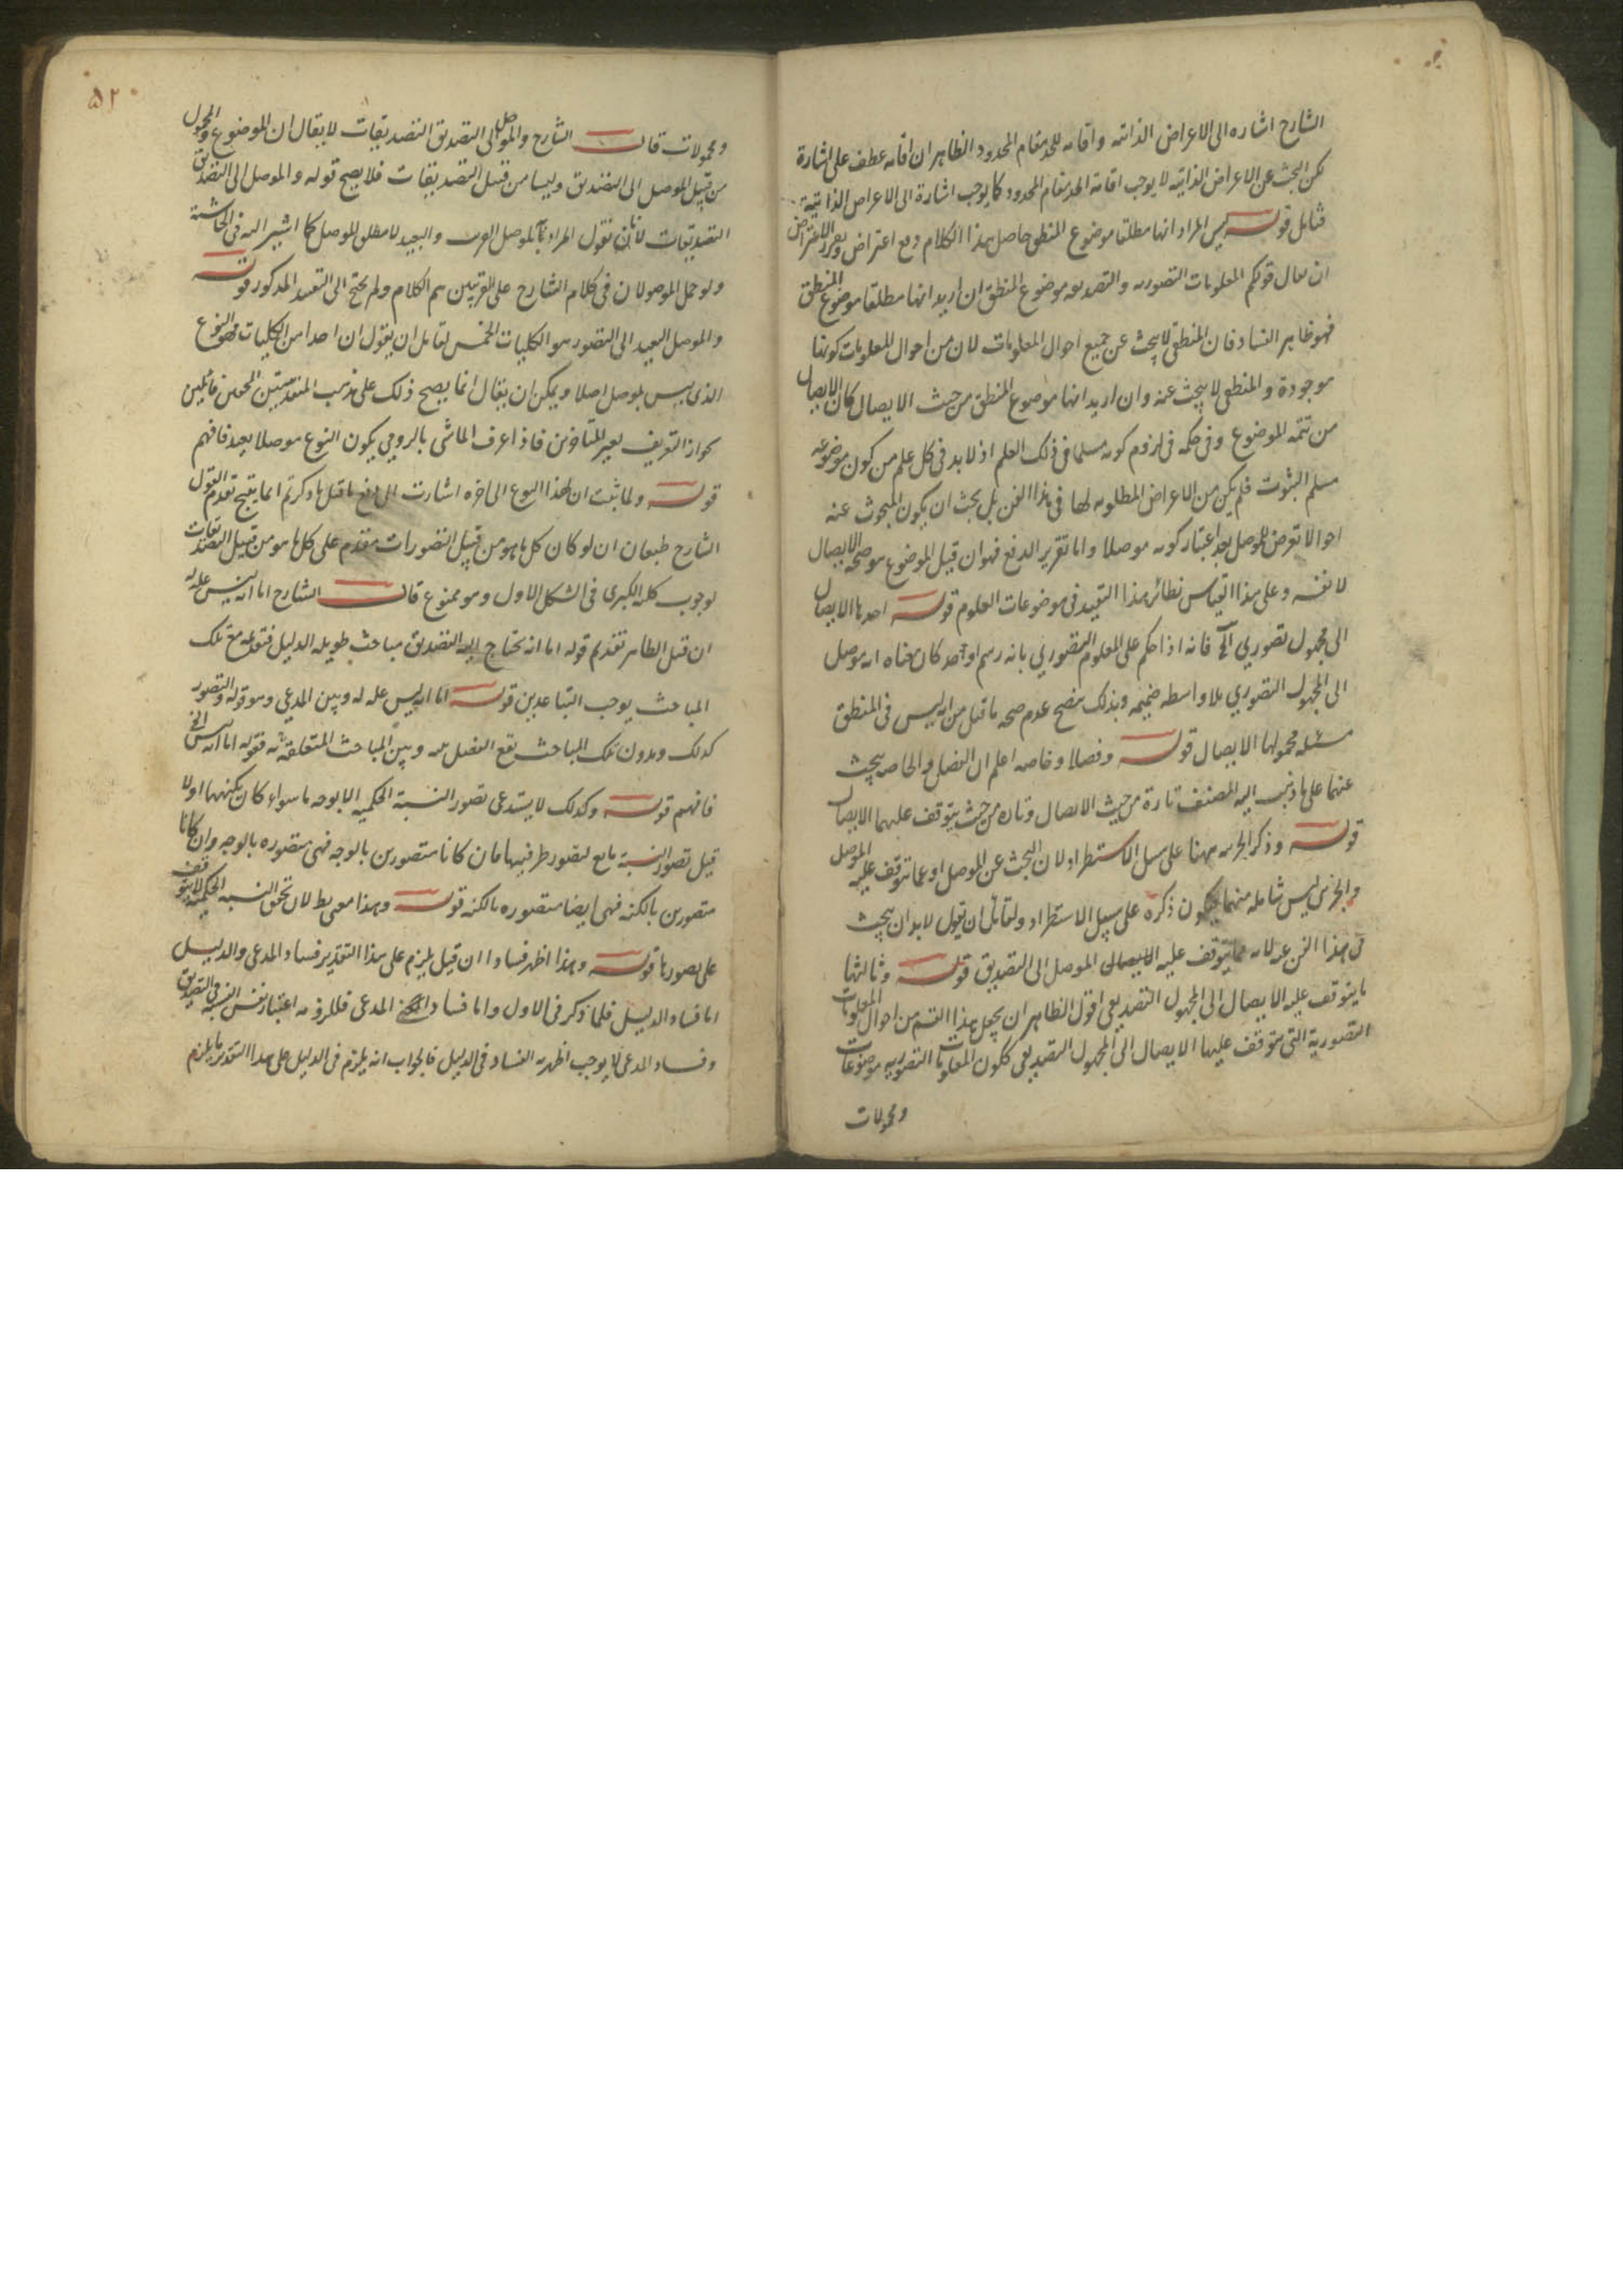 الشارح اشاره الى الاعراض الذاتيه واقامه للحد مقام المحدود الظاهر ان اقامه عطف على اشارة
لكن البحث عن الاعراض الذاتيه لا يوجب اقامة الحد مقام المحدود كما يوجب اشارة الى الاعراض الذاتية
فتامل قوله ليس المراد انها مطلقا موضوع المنطق حاصل هذا الكلام دفع اعتراض وتقرير الاعتراض
ان يقال قولكم المعلومات التصوريه والتصديقيه موضوع المنطق ان اريد انها مطلقا موضوع المنطق
فهو ظاهر الفساد فان المنطقي لا يبحث عن جميع احوال المعلومات لان من احوال المعلومات كونها
موجودة والمنطقي لا يبحث عنه وان اريد انها موضوع المنطق من حيث الايصال كان الايصال
من تتمه الموضوع وفي حكمه في لزوم كونه مسلما في ذلك العلم اذ لا بد في كل علم من كون موضوعه
مسلم الثبوت فلم يكن من الاعراض المطلوبه لها في هذا الفن بل يجب ان يكون المبحوث عنه
احوالا تعرض للموصل بعد اعتبار كونه موصلا واما تقرير الدفع فهو ان قيل الموضوع هو صحة الايصال
لا نفسه وعلى هذا القياس نظائر هذا التقييد في موضوعات العلوم قوله احدها الايصال
الى مجهول تصوري الخ فانه اذا حكم على المعلوم التصوري بانه رسم او حد كان معناه انه موصل
الى المجهول التصوري بلا واسطه ضميمه وبذلك يتضح عدم صحه ما قيل من انه ليس في المنطق
مسئله محمولها الايصال قوله وفصلا وخاصه اعلم ان الفصل والخاصه يبحث
عنهما على ما ذهب اليه المصنف تارة من حيث الايصال وتاره من حيث يتوقف عليهما الايصال
قوله وذكر الجزئيه ههنا على سبيل الاستطراد لان البحث عن الموصل او عما يتوقف عليه الموصل
والجزئي ليس شامله منهما فيكون ذكره على سبيل الاستطراد ولقائل ان يقول لا بد ان يبحث
في هذا الفن عنه لانه مما يتوقف عليه الايصال الموصل الى التصديق قوله وثالثها
ما يتوقف عليه الايصال الى المجهول التصديقي اقول الظاهر ان يجعل هذا القسم من احوال المعلومات
التصورية التي يتوقف عليها الايصال الى المجهول التصديقي ككون المعلومات التصوريه موضوعات
ومحمولات
۵۲
ومحمولات قال الشارح والموصل الى التصديق التصديقات لا يقال ان الموضوع والمحمول
من قبيل الموصل الى التصديق وليسا من قبيل التصديقات فلا يصح قوله والموصل الى التصديق
التصديقات لانا نقول المراد بالموصل القريب والبعيد لا مطلق الموصل كما اشير اليه في الحاشية
ولو حمل الموصولان في كلام الشارح على القريبين تم الكلام ولم يحتج الى التقييد المذكور قوله
والموصل البعيد الى التصور هو الكليات الخمس لقائل ان يقول ان احدا من الكليات فهو النوع
الذي ليس بموصل اصلا ويمكن ان يقال انما يصح ذلك على مذهب المتقدمين المحققين قائلين
بجواز التعريف بغير للمتاخرين فاذا عرف الماشي بالرومي يكون النوع موصلا بعيد فافهم
قوله ولما ثبت ان لهذا النوع الى اخره اشارت الى دفع ما قيل ما ذكرتم انما ينتج تقدم القول
الشارح طبعا ان لو كان كل ما هو من قبيل التصورات مقدم على كل ما هو من قبيل التصديقات
لوجوب كليه الكبرى في الشكل الاول وهو ممنوع قال الشارح اما انه ليس عله له
ان قيل الظاهر تقديم قوله اما انه يحتاج اليه التصديق مباحث طويله الدليل فتوسط تلك
المباحث يوجب التباعد بين قوله اما انه ليس عله له وبين المدعي وهو قوله والتصور
كذلك وبدون تلك المباحث يقع الفصل بينه وبين المباحث المتعلقة به فقوله اما انه ليس الخ
فافهم قوله وكذلك لا يستدعي تصور النسبة الحكميه الا بوجه ما سواء كان بكنهها اولا
قيل تصور النسبة تابع لتصور طرفيها فان كانا متصورين بالوجه فهي متصوره بالوجه وان كانا
متصورين بالكنه فهي ايضا متصوره بالكنه قوله وهذا معنى بط لان تحقق النسبه الحكميه لا يتوقف
على تصورها قوله وهذا اظهر فسادا ان قيل يلزم على هذا التقدير فساد المدعي والدليل
اما فساد الدليل فلما ذكر في الاول واما فساد المدعى فللزومه اعتبار نفس النسبه في التصديق
وفساد المدعى لا يوجب اظهريه الفساد في الدليل فالجواب انه يلزم في الدليل على هذا التقدير ما يلزم